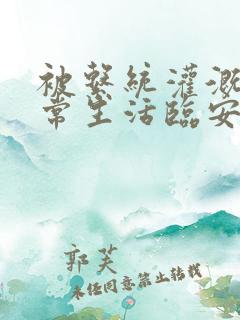 被系统灌溉
常生活临安
郭芙
未经同意禁止转载